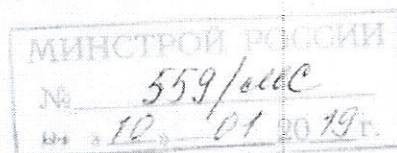 МИНСТРОЙ РОССИИ
№ 559/ммс
от «10» 01 2019 г.